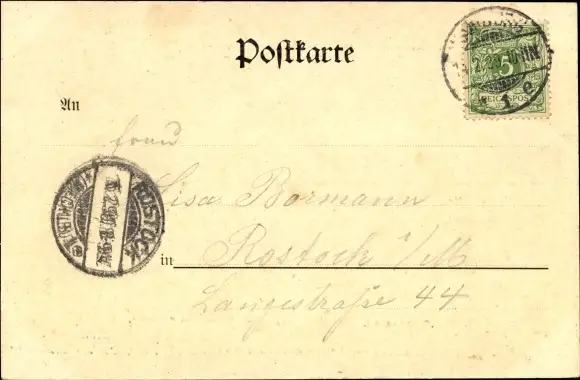 Postkarte
5
REICHSPOST
1 e
An
Frau
Lisa Bormann
ROSTOCK
in Rostock i/M
Langestraße 44